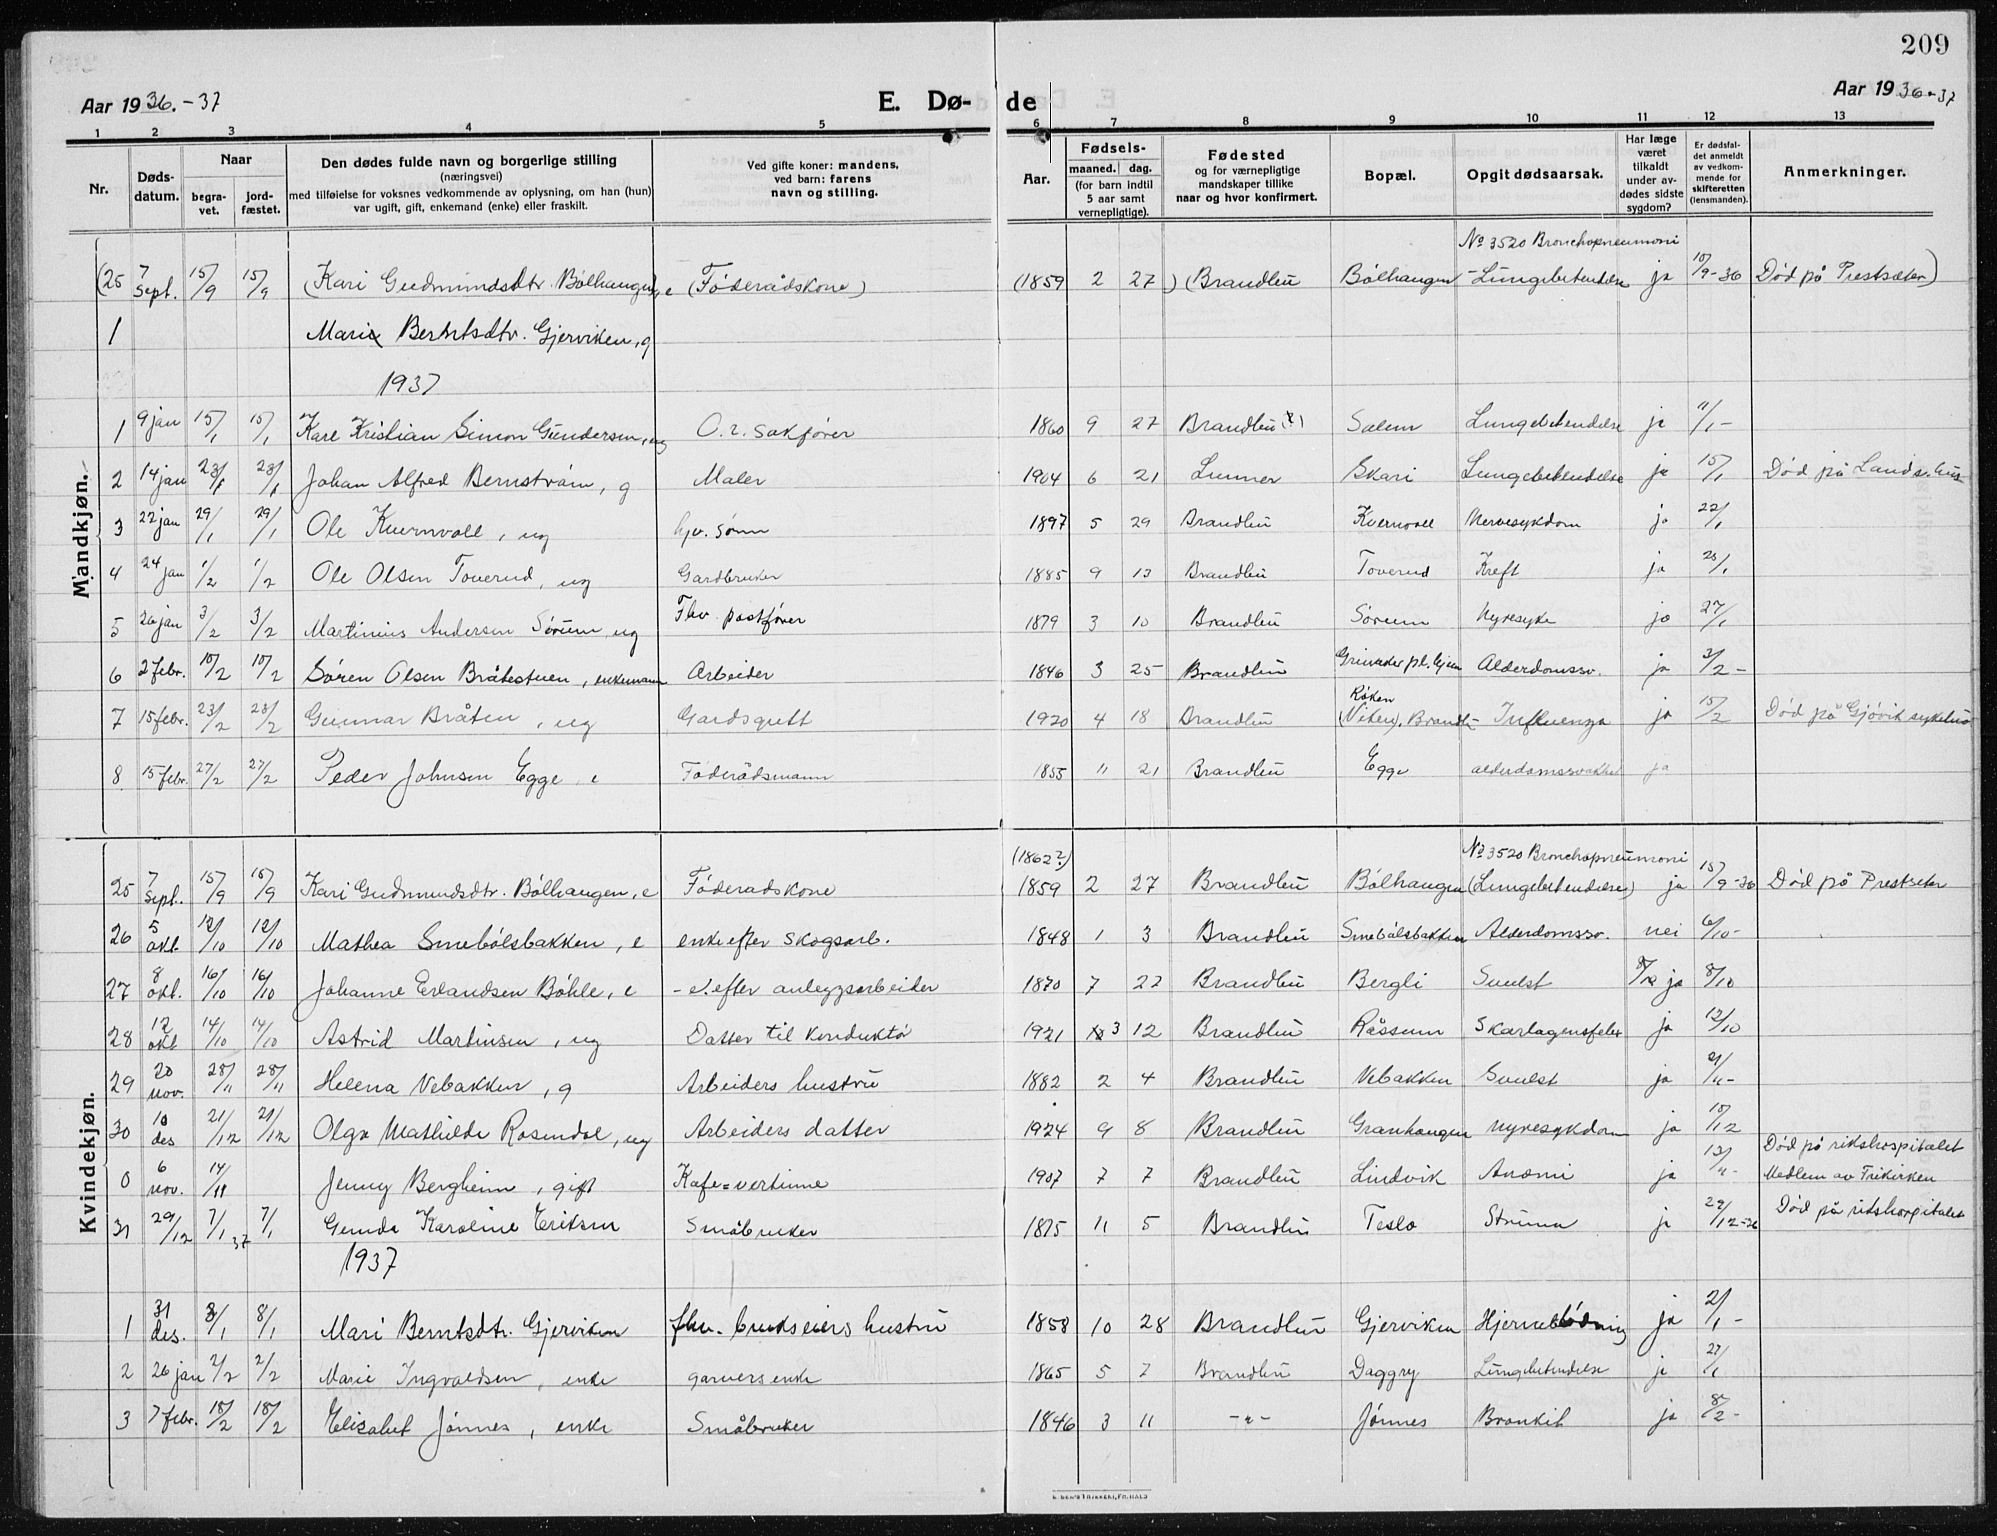 209
Aar 1936.-37
E. Dø-
de
Aar 1936-37
1 2 3 4 5 6 7 8 9 10 11 12 13
Nr.
Døds-datum.
Naar
begra-vet.
jord-fæstet.
Den dødes fulde navn og borgerlige stilling
(næringsvei)
med tilføielse for voksnes vedkommende av oplysning, om han (hun)
var ugift, gift, enkemand (enke) eller fraskilt.
Ved gifte koner: mandens,
ved barn: farens
navn og stilling.
Aar.
Fødsels-
maaned. dag.
(for barn indtil
5 aar samt
vernepligtige).
Fødested
og for værnepligtige
mandskaper tillike
naar og hvor konfirmert.
Bopæl.
Opgit dødsaarsak.
Har læge
været
tilkaldt
under av-
dødes sidste
sygdom?
Er dødsfal-
det anmeldt
av vedkom-
mende for
skifteretten
(lensmanden).
Anmerkninger.
Mandkjøn.
No 3520 Bronchopneumoni
(25 7 Sept. 15/9 15/9 (Kari Gudmundsdtr. Bølhaugen, e (Føderådskone) (1859 2 27) (Brandbu Bølhaugen -Lungebetendelse ja 10/9-36 Død på Prestsæter)
1 Marie Berntsdtr. Gjerviken, g
1937
1 9 jan 15/1 15/1 Kare Kristian Simon Gundersen, ug O.r. sakfører 1860 9 27 Brandbu (?) Solem Lungebetendelse ja 11/1-
2 14 jan 23/1 23/1 Johan Alfred Bernstrøm, g Maler 1904 6 21 Lunner Skari Lungebetendelse ja 15/1 Død på Lands.hus
3 22 jan 29/1 29/1 Ole Kvernvoll, ug hjv. sønn 1897 5 29 Brandbu Kvernvoll Nervesykdom ja 22/1
4 24 jan 1/2 1/2 Ole Olsen Toverud, ug Gardbruker 1885 9 13 Brandbu Toverud Kreft ja 25/1
5 26 jan 3/2 3/2 Martinius Andersen Sørum, ug Fhv. postfører 1879 3 10 Brandbu Sørum Nyresyke ja 27/1
6 2 febr. 10/2 10/2 Søren Olsen Bråtestuen, enkemann Arbeider 1846 3 25 Brandbu Alderdomssv. ja 3/2-
7 15 febr. 23/2 23/2 Gunnar Bråten, ug Gardsgutt 1920 4 18 Brandbu Røken (Viken), Brandb- Influenza ja 15/2 Død på Gjøvik sykehus
8 15 febr. 27/2 27/2 Peder Johnsen Egge, e Føderådsmann 1855 11 21 Brandbu Egge alderdomssvakhet ja
Kvindekjøn.
(1862?) No 3520 Bronchopneumoni
25 7 Sept. 15/9 15/9 Kari Gudmundsdtr. Bølhaugen, e Føderadskone 1859 2 27 Brandbu Bølhaugen (Lungebetendelse) ja 15/9-36 Død på Prestseter
26 5 okt. 12/10 12/10 Mathea Smebølsbakken, e enke efter skogsarb. 1848 1 3 Brandbu Smebølsbakken Alderdomssv. nei 6/10-
27 8 okt. 16/10 16/10 Johanne Erlandsen Bøhle, e - e. efter anleggsarbeider 1870 7 22 Brandbu Bergli Svulst ja 8/10
28 12 okt 14/10 14/10 Astrid Martinsen, ug Datter til konduktør 1921 3 12 Brandbu Røssum Skarlagensfeber ja 12/10
29 20 nov. 28/11 28/11 Helena Vebakken, g Arbeiders hustru 1882 2 4 Brandbu Vebakken Svulst ja 21/11-
30 10 des 21/12 21/12 Olga Mathilde Rosendal, ug Arbeiders datter 1924 9 8 Brandbu Granhaugen nyresykdom ja 10/12
0 6 nov. 14/11 Jenny Bergheim, gift Kafe=vertinne 1907 7 7 Brandbu Lindvik Anæmi ja 13/11- Død på rikshospitalet Medlem av Frikirken
31 29/12 7/1 37 7/1 Gunda Karoline Eriksen Småbruker 1875 11 5 Brandbu Teslo Struma ja 29/12-36 Død på rikshospitalet
1937
1 31 des. 8/1 8/1 Mari Berntsdtr. Gjerviken fhv. bruksseiers hustru 1858 10 28 Brandbu Gjerviken Hjerneblødning ja 2/1-
2 26 jan 2/2 2/2 Marie Ingvaldsen, enke garvers enke 1865 5 7 Brandbu Daggry Lungebetendelse ja 27/1
3 7 febr. 18/2 18/2 Elisabet Jønnes, enke Småbruker 1846 3 11 -"- Jønnes Bronkit ja 8/2-